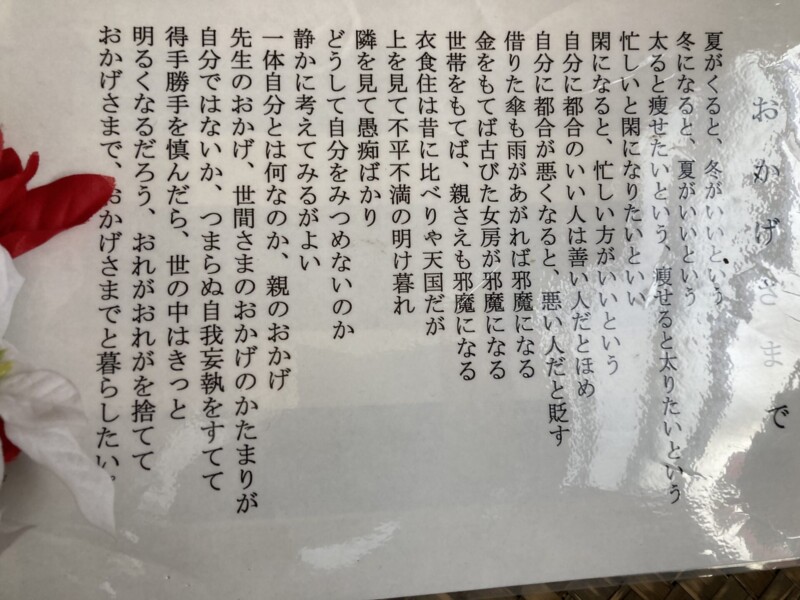 おかげさまで
夏がくると、冬がいいという
冬になると、夏がいいという
太ると痩せたいという、痩せると太りたいという
忙しいと閑になりたいといい
閑になると、忙しい方がいいという
自分に都合のいい人は善い人だとほめ
自分に都合が悪くなると、悪い人だと貶す
借りた傘も雨があがれば邪魔になる
金をもてば古びた女房が邪魔になる
世帯をもてば、親さえも邪魔になる
衣食住は昔に比べりゃ天国だが
上を見て不平不満の明け暮れ
隣を見て愚痴ばかり
どうして自分をみつめないのか
静かに考えてみるがよい
一体自分とは何なのか、親のおかげ
先生のおかげ、世間さまのおかげのかたまりが
自分ではないか、つまらぬ自我妄執をすてて
得手勝手を慎んだら、世の中はきっと
明るくなるだろう、おれがおれがを捨てて
おかげさまで、おかげさまでと暮らしたい。